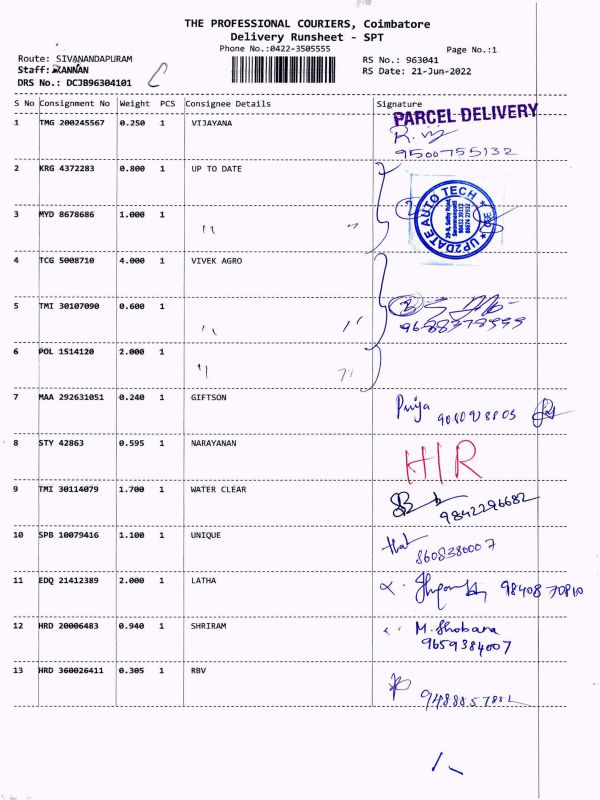 THE PROFESSIONAL COURIERS, Coimbatore
Delivery Runsheet - SPT
Phone No.:0422-3505555
Page No.:1
Route: SIVANANDAPURAM
RS No.: 963041
Staff: KANNAN
RS Date: 21-Jun-2022
DRS No.: DCJB96304101
S No Consignment No Weight PCS Consignee Details Signature
PARCEL DELIVERY
1 TMG 200245567 0.250 1 VIJAYANA
9500755132
2 KRG 4372283 0.800 1 UP TO DATE
UP2DATE AUTO TECH
3 MYD 8678686 1.000 1 " "
4 TCG 5008710 4.000 1 VIVEK AGRO
5 TMI 30107090 0.600 1 " "
6 POL 1514120 2.000 1 " "
7 MAA 292631051 0.240 1 GIFTSON Priya
8 STY 42863 0.595 1 NARAYANAN HIR
9 TMI 30114079 1.700 1 WATER CLEAR 9842296682
10 SPB 10079416 1.100 1 UNIQUE 8608380007
11 EDQ 21412389 2.000 1 LATHA 98408 70810
12 HRD 20006483 0.940 1 SHRIRAM M. Shobana
9659384007
13 HRD 360026411 0.305 1 RBV